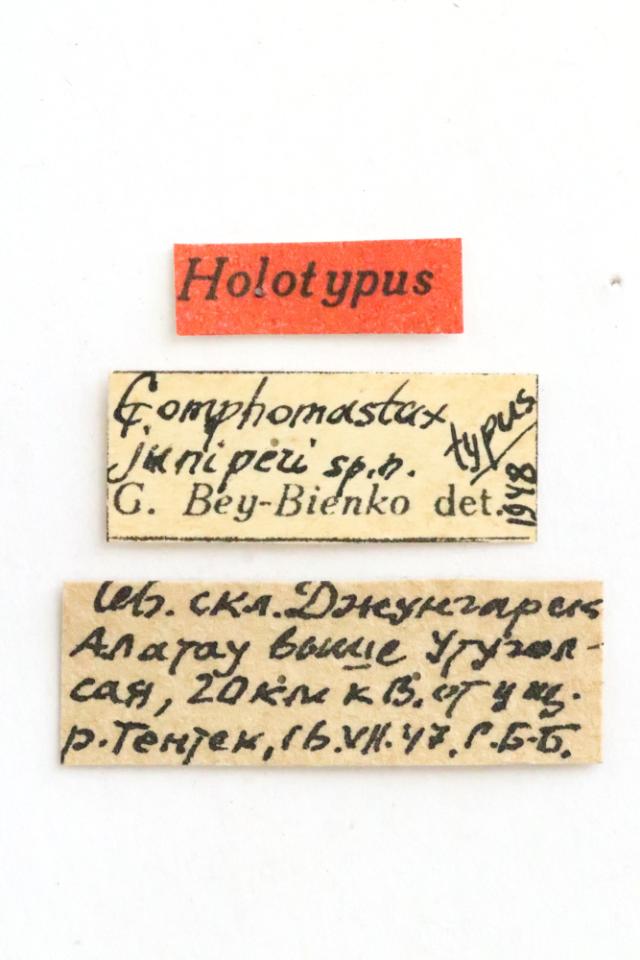 Holotypus
Gomphomastax
juniperi sp. n. typus
G. Bey-Bienko det. 1948
Сев. скл. Джунгарск
Алатау выше Утугол-
сая, 20 км к В. от ущ.
р. Тентек, 16.VII.47. Г.Б-Б.